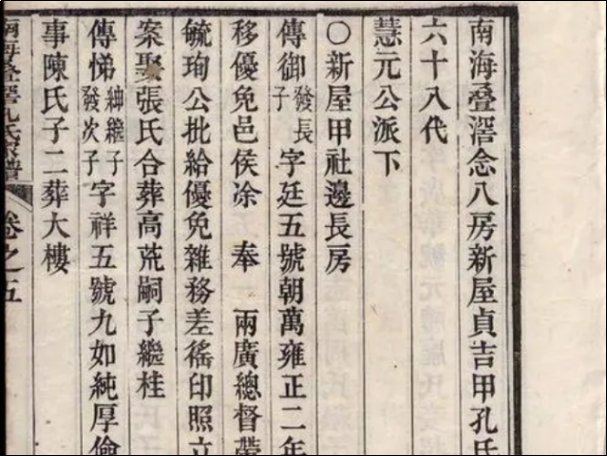 南海疊滘念八房新屋貞吉甲孔氏
六十八代
慧元公派下
○新屋甲社邊長房
傳御發長子字廷五號朝萬雍正二年
移優免邑侯凃 奉 兩廣總督
毓珣公批給優免雜務差徭印照立
案聚張氏合葬高茺嗣子繼桂
傳悌紳繼子發次子字祥五號九如純厚儉
事陳氏子二葬大樓
南海疊滘孔氏家譜 卷之五